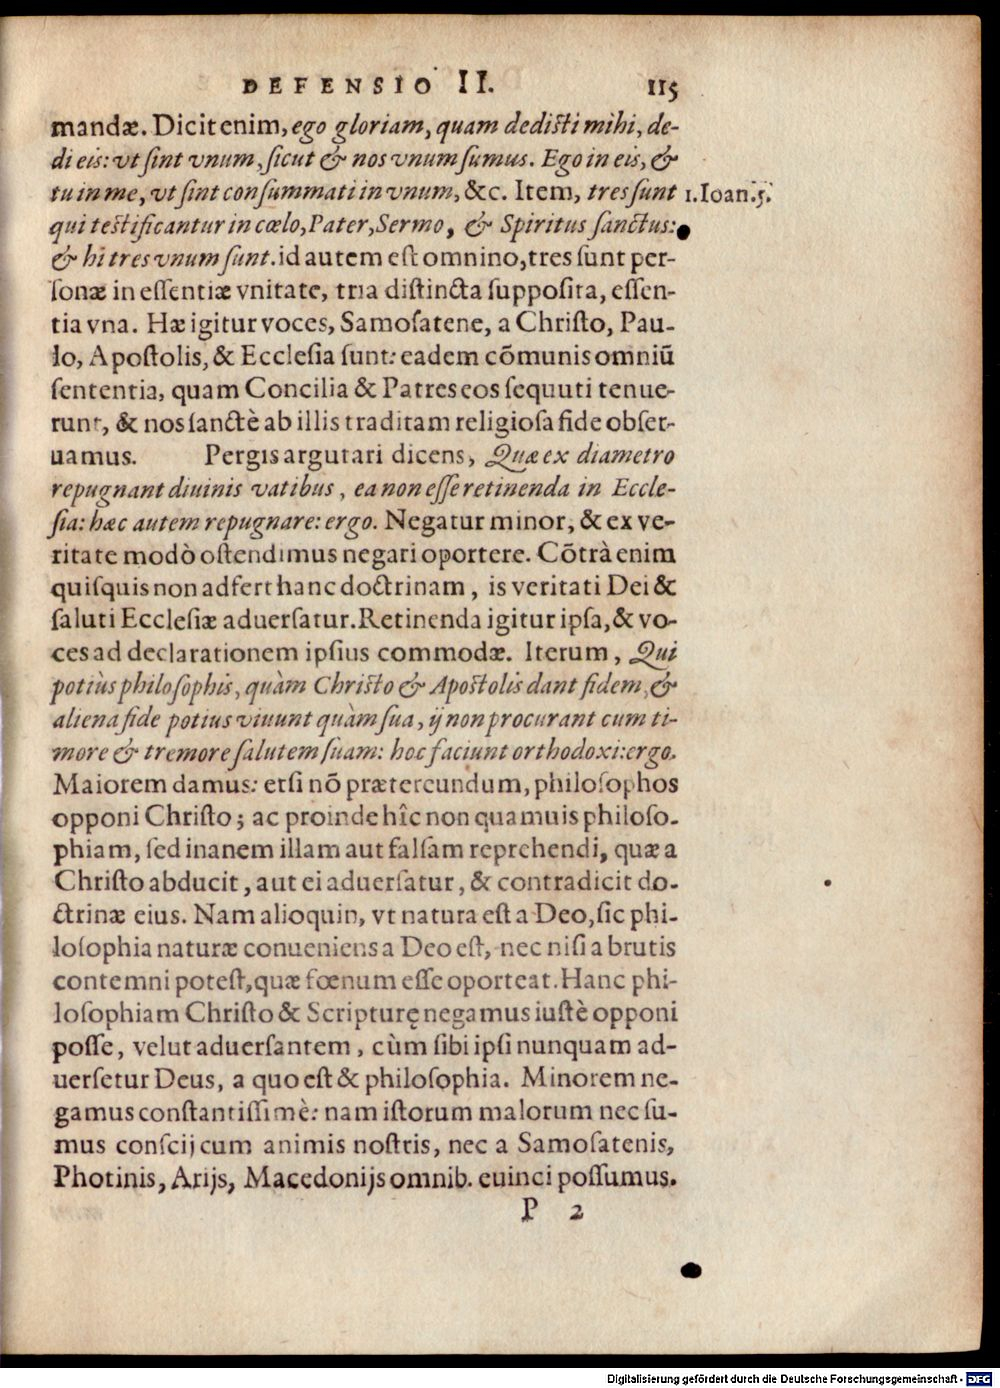 DEFENSIO II. 115
mandæ. Dicit enim, ego gloriam, quam dedisti mihi, de-
di eis: vt sint vnum, sicut & nos vnum sumus. Ego in eis, &
tu in me, vt sint consummati in vnum, &c. Item, tres sunt 1.Ioan.5.
qui testificantur in cœlo, Pater, Sermo, & Spiritus sanctus:
& hi tres vnum sunt. id autem est omnino, tres sunt per-
sonæ in essentiæ vnitate, tria distincta supposita, essen-
tia vna. Hæ igitur voces, Samosatene, a Christo, Pau-
lo, Apostolis, & Ecclesia sunt: eadem cõmunis omniũ
sententia, quam Concilia & Patres eos sequuti tenue-
runt, & nos sanctè ab illis traditam religiosa fide obser-
uamus. Pergis argutari dicens, Quæ ex diametro
repugnant diuinis vatibus, ea non esse retinenda in Eccle-
sia: hæc autem repugnare: ergo. Negatur minor, & ex ve-
ritate modò ostendimus negari oportere. Cõtrà enim
quisquis non adfert hanc doctrinam, is veritati Dei &
saluti Ecclesiæ aduersatur. Retinenda igitur ipsa, & vo-
ces ad declarationem ipsius commodæ. Iterum, Qui
potiùs philosophis, quàm Christo & Apostolis dant fidem, &
aliena fide potius viuunt quàm sua, ij non procurant cum ti-
more & tremore salutem suam: hoc faciunt orthodoxi: ergo.
Maiorem damus: etsi nõ prætereundum, philosophos
opponi Christo; ac proinde hîc non quamuis philoso-
phiam, sed inanem illam aut falsam reprehendi, quæ a
Christo abducit, aut ei aduersatur, & contradicit do-
ctrinæ eius. Nam alioquin, vt natura est a Deo, sic phi-
losophia naturæ conueniens a Deo est, nec nisi a brutis
contemni potest, quæ fœnum esse oporteat. Hanc phi-
losophiam Christo & Scripturę negamus iustè opponi
posse, velut aduersantem, cùm sibi ipsi nunquam ad-
uersetur Deus, a quo est & philosophia. Minorem ne-
gamus constantissimè: nam istorum malorum nec su-
mus conscij cum animis nostris, nec a Samosatenis,
Photinis, Arijs, Macedonijs omnib. euinci possumus.
P 2
Digitalisierung gefördert durch die Deutsche Forschungsgemeinschaft - DFG